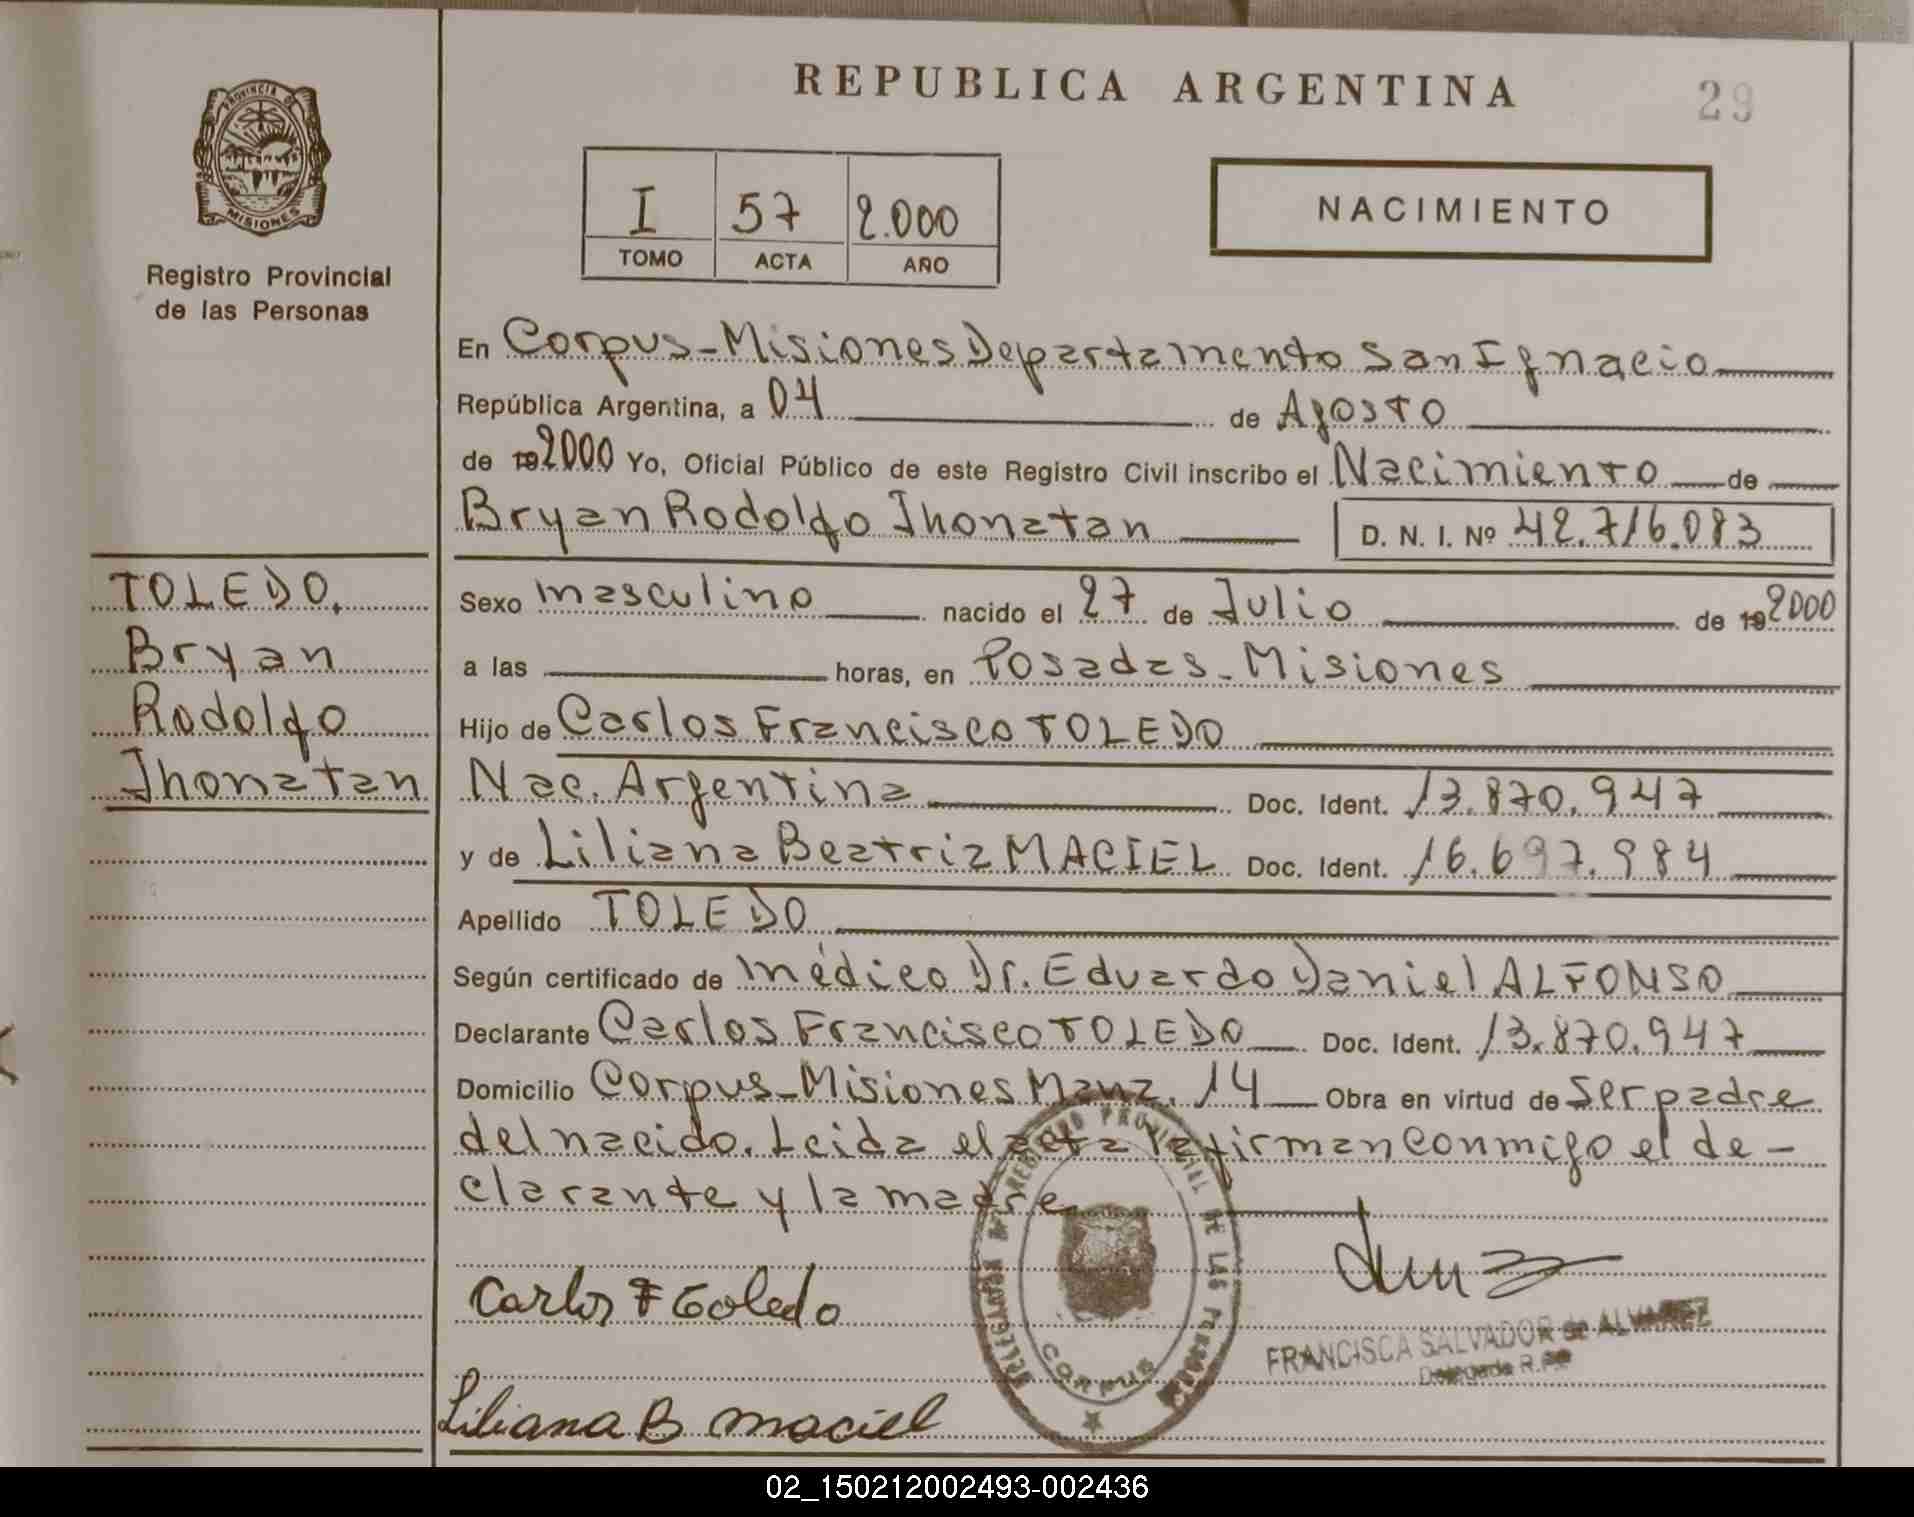 PROVINCIA DE
MISIONES
Registro Provincial
de las Personas
REPUBLICA ARGENTINA
29
I 57 2.000
TOMO ACTA AÑO
NACIMIENTO
En Corpus-Misiones Departamento San Ignacio
República Argentina, a 04 de Agosto
de 192000 Yo, Oficial Público de este Registro Civil inscribo el Nacimiento de
Bryan Rodolfo Jhonatan D. N. I. Nº 42.716.083
TOLEDO,
Bryan
Rodolfo
Jhonatan
Sexo masculino nacido el 27 de Julio de 192000
a las horas, en Posadas-Misiones
Hijo de Carlos Francisco TOLEDO
Nac. Argentina Doc. Ident. 13.870.947
y de Liliana Beatriz MACIEL Doc. Ident. 16.697.984
Apellido TOLEDO
Según certificado de médico Dr. Eduardo Daniel ALFONSO
Declarante Carlos Francisco TOLEDO Doc. Ident. 13.870.947
Domicilio Corpus-Misiones Manz. 14 Obra en virtud de ser padre
del nacido. Leida el acta la firman conmigo el de-
clarante y la madre
Carlos F Toledo
Liliana B Maciel
DELEGACION DEL REGISTRO PROVINCIAL DE LAS PERSONAS
CORPUS
FRANCISCA SALVADOR de ALVAREZ
Delegada R.P.P.
02_150212002493-002436